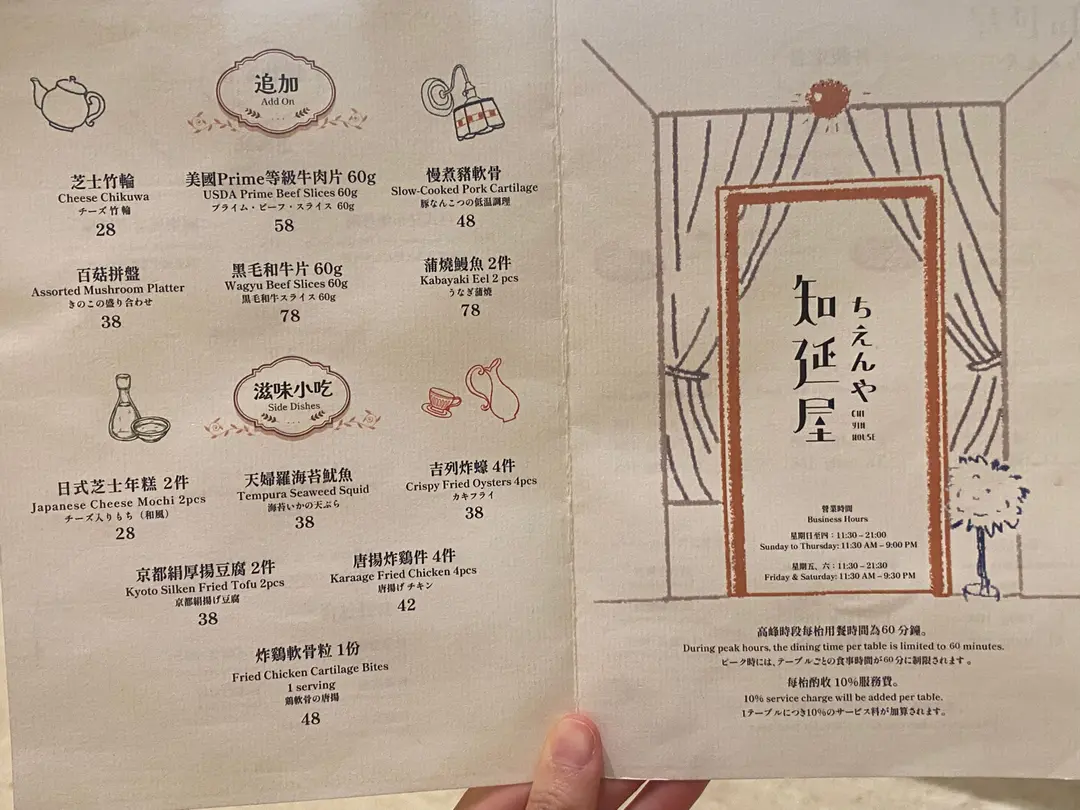 追加
Add On
芝士竹輪
Cheese Chikuwa
チーズ竹輪
28
美國Prime等級牛肉片 60g
USDA Prime Beef Slices 60g
プライム・ビーフ・スライス 60g
58
慢煮豬軟骨
Slow-Cooked Pork Cartilage
豚なんこつの低温調理
48
百菇拼盤
Assorted Mushroom Platter
きのこの盛り合わせ
38
黑毛和牛片 60g
Wagyu Beef Slices 60g
黒毛和牛スライス 60g
78
蒲燒鰻魚 2件
Kabayaki Eel 2 pcs
うなぎ蒲焼
78
滋味小吃
Side Dishes
日式芝士年糕 2件
Japanese Cheese Mochi 2pcs
チーズ入りもち（和風）
28
天婦羅海苔魷魚
Tempura Seaweed Squid
海苔いかの天ぷら
38
吉列炸蠔 4件
Crispy Fried Oysters 4pcs
カキフライ
38
京都絹厚揚豆腐 2件
Kyoto Silken Fried Tofu 2pcs
京都絹揚げ豆腐
38
唐揚炸鷄件 4件
Karaage Fried Chicken 4pcs
唐揚げチキン
42
炸鷄軟骨粒 1份
Fried Chicken Cartilage Bites
1 serving
鶏軟骨の唐揚
48
知延屋
ちえんや
CHI
YIN
HOUSE
營業時間
Business Hours
星期日至四：11:30 – 21:00
Sunday to Thursday: 11:30 AM – 9:00 PM
星期五、六：11:30 – 21:30
Friday & Saturday: 11:30 AM – 9:30 PM
高峰時段每枱用餐時間為60分鐘。
During peak hours, the dining time per table is limited to 60 minutes.
ピーク時には、テーブルごとの食事時間が60分に制限されます。
每枱酌收 10%服務費。
10% service charge will be added per table.
1テーブルにつき10%のサービス料が加算されます。